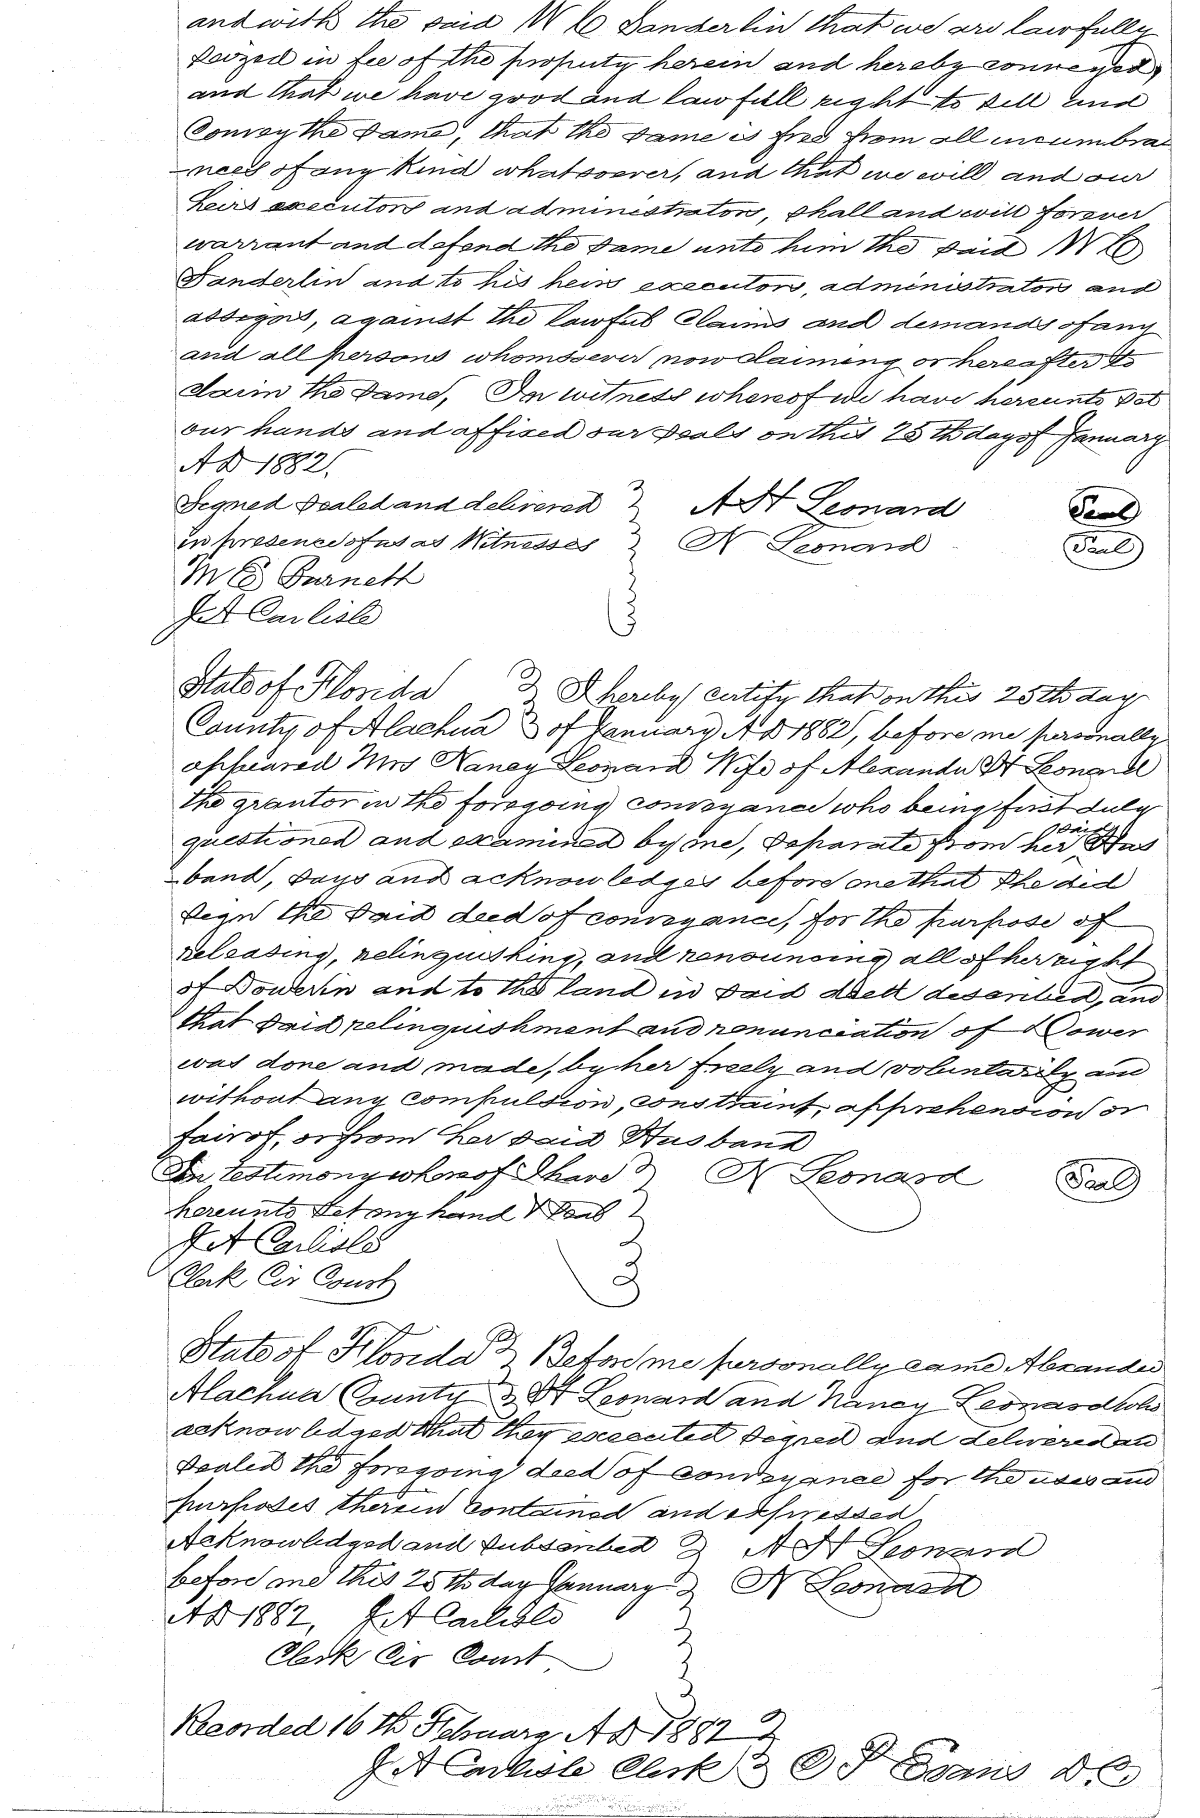 and with the said W C Sanderlin that we are lawfully
seized in fee of the property herein and hereby conveyed,
and that we have good and lawfull right to sell and
Convey the same, that the same is free from all incumbra
-nces of any kind whatsoever, and that we will and our
heirs executors and administrators, shall and will forever
warrant and defend the same unto him the said W C
Sanderlin and to his heirs executors, administrators and
assigns, against the lawful Claims and demands of any
and all persons whomsoever now claiming or hereafter to
claim the same, In witness whereof we have hereunto set
our hands and affixed our seals on this 25th day of January
A D 1882.
Signed sealed and delivered } A H Leonard Seal
in presence of us as Witnesses } N Leonard Seal
M E Burnett
J A Carlisle
State of Florida } I hereby certify that on this 25th day
County of Alachua } of January A D 1882, before me personally
appeared Mrs Nancy Leonard Wife of Alexander H Leonard
the grantor in the foregoing conveyance who being first duly
questioned and examined by me, separate from her said Hus
-band, says and acknowledges before me that she did
sign the said deed of conveyance, for the purpose of
releasing, relinquishing, and renouncing all of her right
of Dower in and to the land in said deed described, and
that said relinquishment and renunciation of Dower
was done and made, by her freely and voluntarily and
without any compulsion, constraint, apprehension or
fair of, or from her said Husband
In testimony whereof I have } N Leonard Seal
hereunto set my hand & seal }
J A Carlisle
Clerk Cir Court
State of Florida } Before me personally came Alexander
Alachua County } H Leonard and Nancy Leonard who
acknowledged that they executed signed and delivered an
sealed the foregoing deed of conveyance for the uses and
purposes therein contained and expressed,
Acknowledged and subscribed } A H Leonard
before me this 25th day January } N Leonard
A D 1882, J A Carlisle
Clerk Cir Court,
Recorded 16th February A D 1882 }
J A Carlisle Clerk } O P Evans D.C